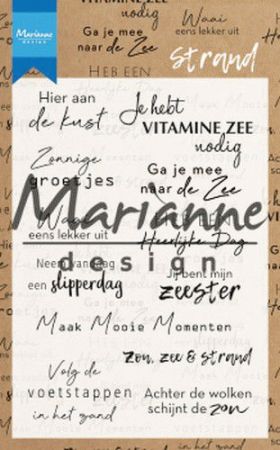 Marianne
design
Ga je mee
naar de Zee
VITAMINE ZEE
nodig
Waai
eens lekker uit
HEB EEN
strand
Hier aan
de kust
Je hebt
VITAMINE ZEE
nodig
Zonnige
groetjes
Ga je mee
naar de Zee
Marianne
design
Waai
eens lekker uit
Heerlijke Dag
Neem vandaag
een slipperdag
Jij bent mijn
zeester
Maak Mooie Momenten
Zon, zee & strand
Volg de
voetstappen
in het zand
Achter de wolken
schijnt de zon